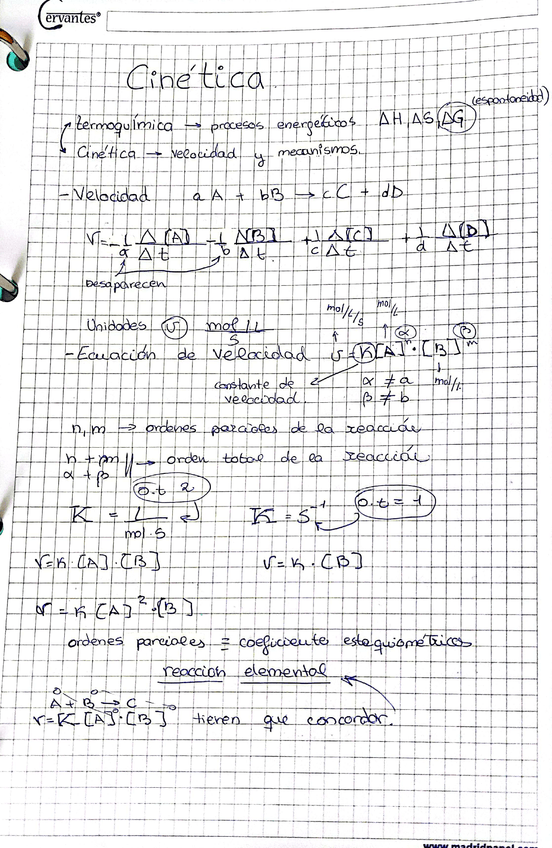 Cervantes®
Cinética
(espontaneidad)
termoquímica → procesos energéticos ΔH, ΔS, ΔG
Cinética → velocidad y mecanismos.
- Velocidad aA + bB → cC + dD
V = - 1/a Δ[A]/Δt - 1/b Δ[B]/Δt + 1/c Δ[C]/Δt + 1/d Δ[D]/Δt
Desaparecen
mol/L/s mol/L
Unidades v mol/L/s
α β
- Ecuación de velocidad v = K[A]ⁿ · [B]ᵐ
constante de velocidad α ≠ a mol/L
β ≠ b
n, m → ordenes parciales de la reacción
n + m
α + β → orden total de la reacción
o.t 2
K = L/mol·s K = S⁻¹ o.t = 1
V = K · [A] · [B] V = K · [B]
V = K [A]² · [B]
ordenes parciales ≡ coeficiente estequiométricos
reaccion elemental
A + B → C
V = K [A] · [B] tienen que concordar.
www.madridpapel.com